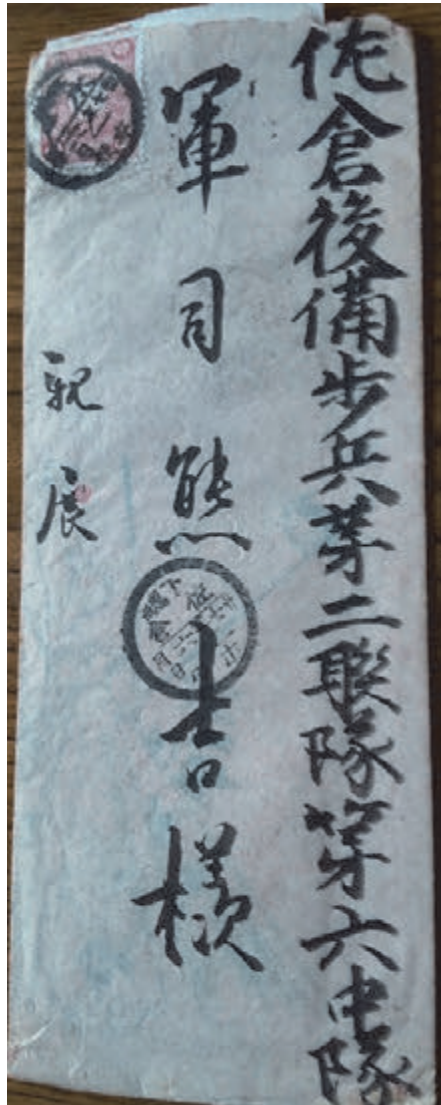 佐倉後備歩兵第二聯隊第六中隊
軍司熊吉様
親展